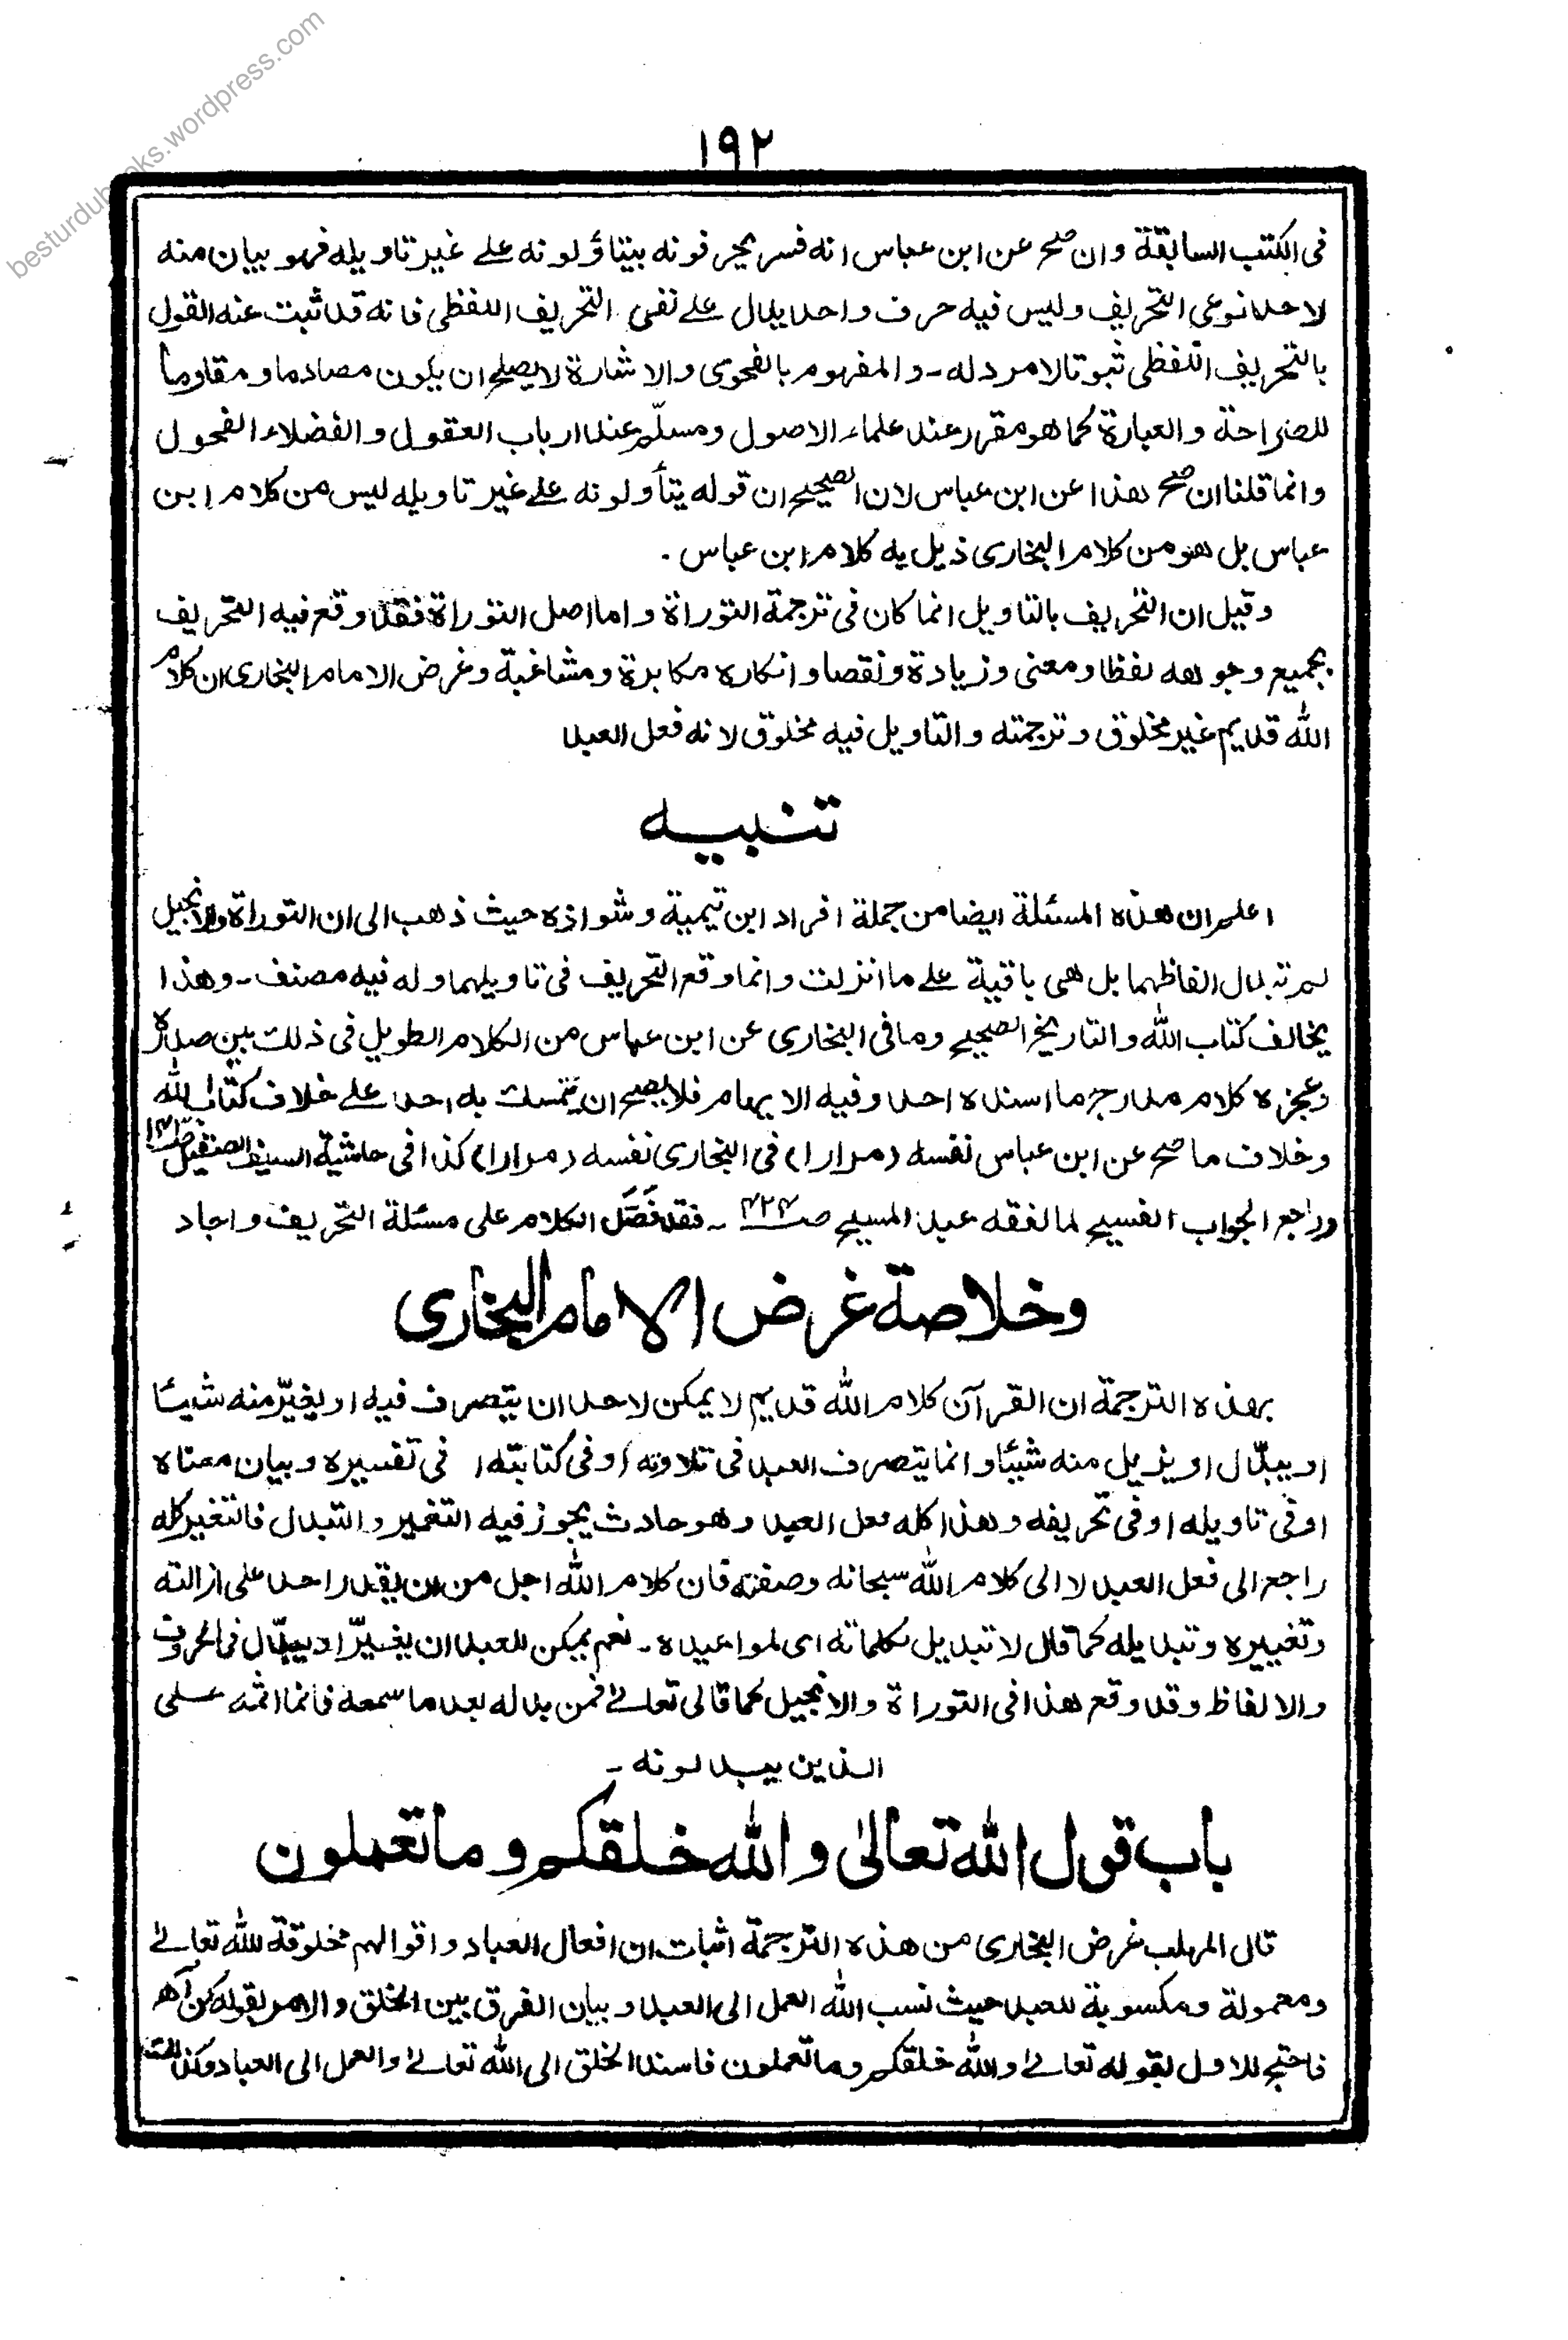 besturdubooks.wordpress.com
١٩٢
فى الكتب السابقة وان صح عن ابن عباس انه فسر يحرفونه بيتاؤلونه على غير تاويله فهو بيان منه
لاحد نوعى التحريف وليس فيه حرف واحد يدل على نفى التحريف اللفظى فانه قد ثبت عنه القول
بالتحريف اللفظى ثبوتا لا مرد له ـ والمفهوم بالفحوى والاشارة لا يصلح ان يكون مصادما ومقاوما
للصراحة والعبارة كما هو مقرر عند علماء الاصول ومسلّم عند ارباب العقول والفضلاء الفحول
وانما قلنا ان صح هذا عن ابن عباس لان الصحيح ان قوله يتأولونه على غير تاويله ليس من كلام ابن
عباس بل هو من كلام البخارى ذيل به كلام ابن عباس .
وقيل ان التحريف بالتاويل انما كان فى ترجمة التوراة واما اصل التوراة فقد وقع فيه التحريف
بجميع وجوهه لفظا ومعنى وزيادة ونقصا وانكاره مكابرة ومشاغبة وغرض الامام البخارى ان كلام
الله قديم غير مخلوق وترجمته والتاويل فيه مخلوق لانه فعل العبد
تنبيه
اعلم ان هذه المسئلة ايضا من جملة افراد ابن تيمية وشواذه حيث ذهب الى ان التوراة والانجيل
لم تبدل الفاظهما بل هى باقية على ما انزلت وانما وقع التحريف فى تاويلهما وله فيه مصنف ـ وهذا
يخالف كتاب الله والتاريخ الصحيح وما فى البخارى عن ابن عباس من الكلام الطويل فى ذلك بين صدره
وعجزه كلام مدرج ما اسنده احد وفيه الايهام فلا يصح ان يتمسك به احد على خلاف كتاب الله
وخلاف ما صح عن ابن عباس نفسه (مرارا) فى البخارى نفسه (مرارا) كذا فى حاشية السيف الصقيل
وراجع الجواب الفسيح لما لفقه عبد المسيح صـ ٤٢٤ ـ فقد فَصَّل الكلام على مسئلة التحريف واجاد
وخلاصة غرض الامام البخارى
بهذه الترجمة ان القرآن كلام الله قديم لا يمكن لاحد ان يتصرف فيه او يغيّر منه شيئا
او يبدّل او يزيل منه شيئا وانما يتصرف العبد فى تلاوته او فى كتابته ا فى تفسيره وبيان معناه
او فى تاويله او فى تحريفه وهذا كله فعل العبد وهو حادث يجوز فيه التغيير والتبدل فالتغير كله
راجع الى فعل العبد لا الى كلام الله سبحانه وصفته فان كلام الله اجل من ان يقدر احد على ازالته
وتغييره وتبديله كما قال لا تبديل لكلماته اى لمواعيده ـ نعم يمكن للعبد ان يغيّر او يبدّل فى الحروف
والالفاظ وقد وقع هذا فى التوراة والانجيل كما قال تعالى فمن بدله بعد ما سمعه فانما اثمه على
الذين يبدلونه ـ
باب قول الله تعالىٰ والله خلقكم وما تعملون
قال المهلب غرض البخارى من هذه الترجمة اثبات ان افعال العباد واقوالهم مخلوقة لله تعالى
ومعمولة ومكسوبة للعبد حيث نسب الله العمل الى العبد وبيان الفرق بين الخلق والامر بقوله كن اه
فاحتج للاول بقوله تعالى والله خلقكم وما تعملون فاسند الخلق الى الله تعالى والعمل الى العباد وكذا